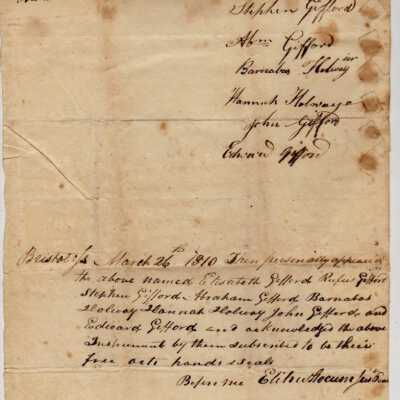 Stephen Gifford
Abm Gifford
Barnabas Holway
Hannah Holway
John Gifford
Edward Gifford
Bristol Ss March 26th 1810 Then personally appeared
the above named Elisabeth Gifford Rufus Gifford
Stephen Gifford Abraham Gifford Barnabas
Holway Hannah Holway John Gifford and
Edward Gifford and acknowledged the above
Instrument by them subscribed to be their
free acts hands & Seals
Before me Elihu Slocum Jus